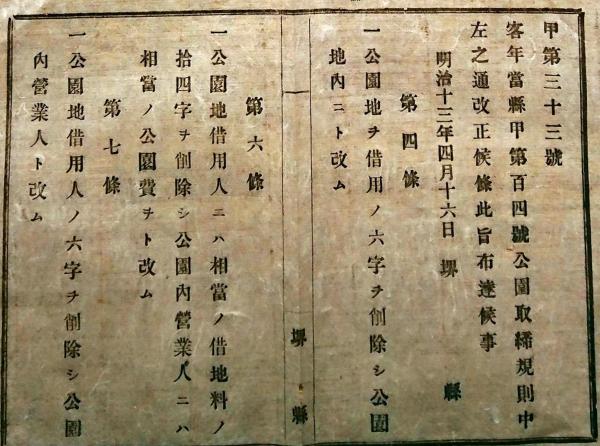 甲第三十三號
客年當縣甲第百四號公園取締規則中
左之通改正候條此旨布達候事
明治十三年四月十六日 堺縣
第四條
一公園地ヲ借用ノ六字ヲ削除シ公園
地内ニト改ム
堺縣
第六條
一公園地借用人ニハ相當ノ借地料ノ
拾四字ヲ削除シ公園内營業人ニハ
相當ノ公園費ヲト改ム
第七條
一公園地借用人ノ六字ヲ削除シ公園
内營業人ト改ム